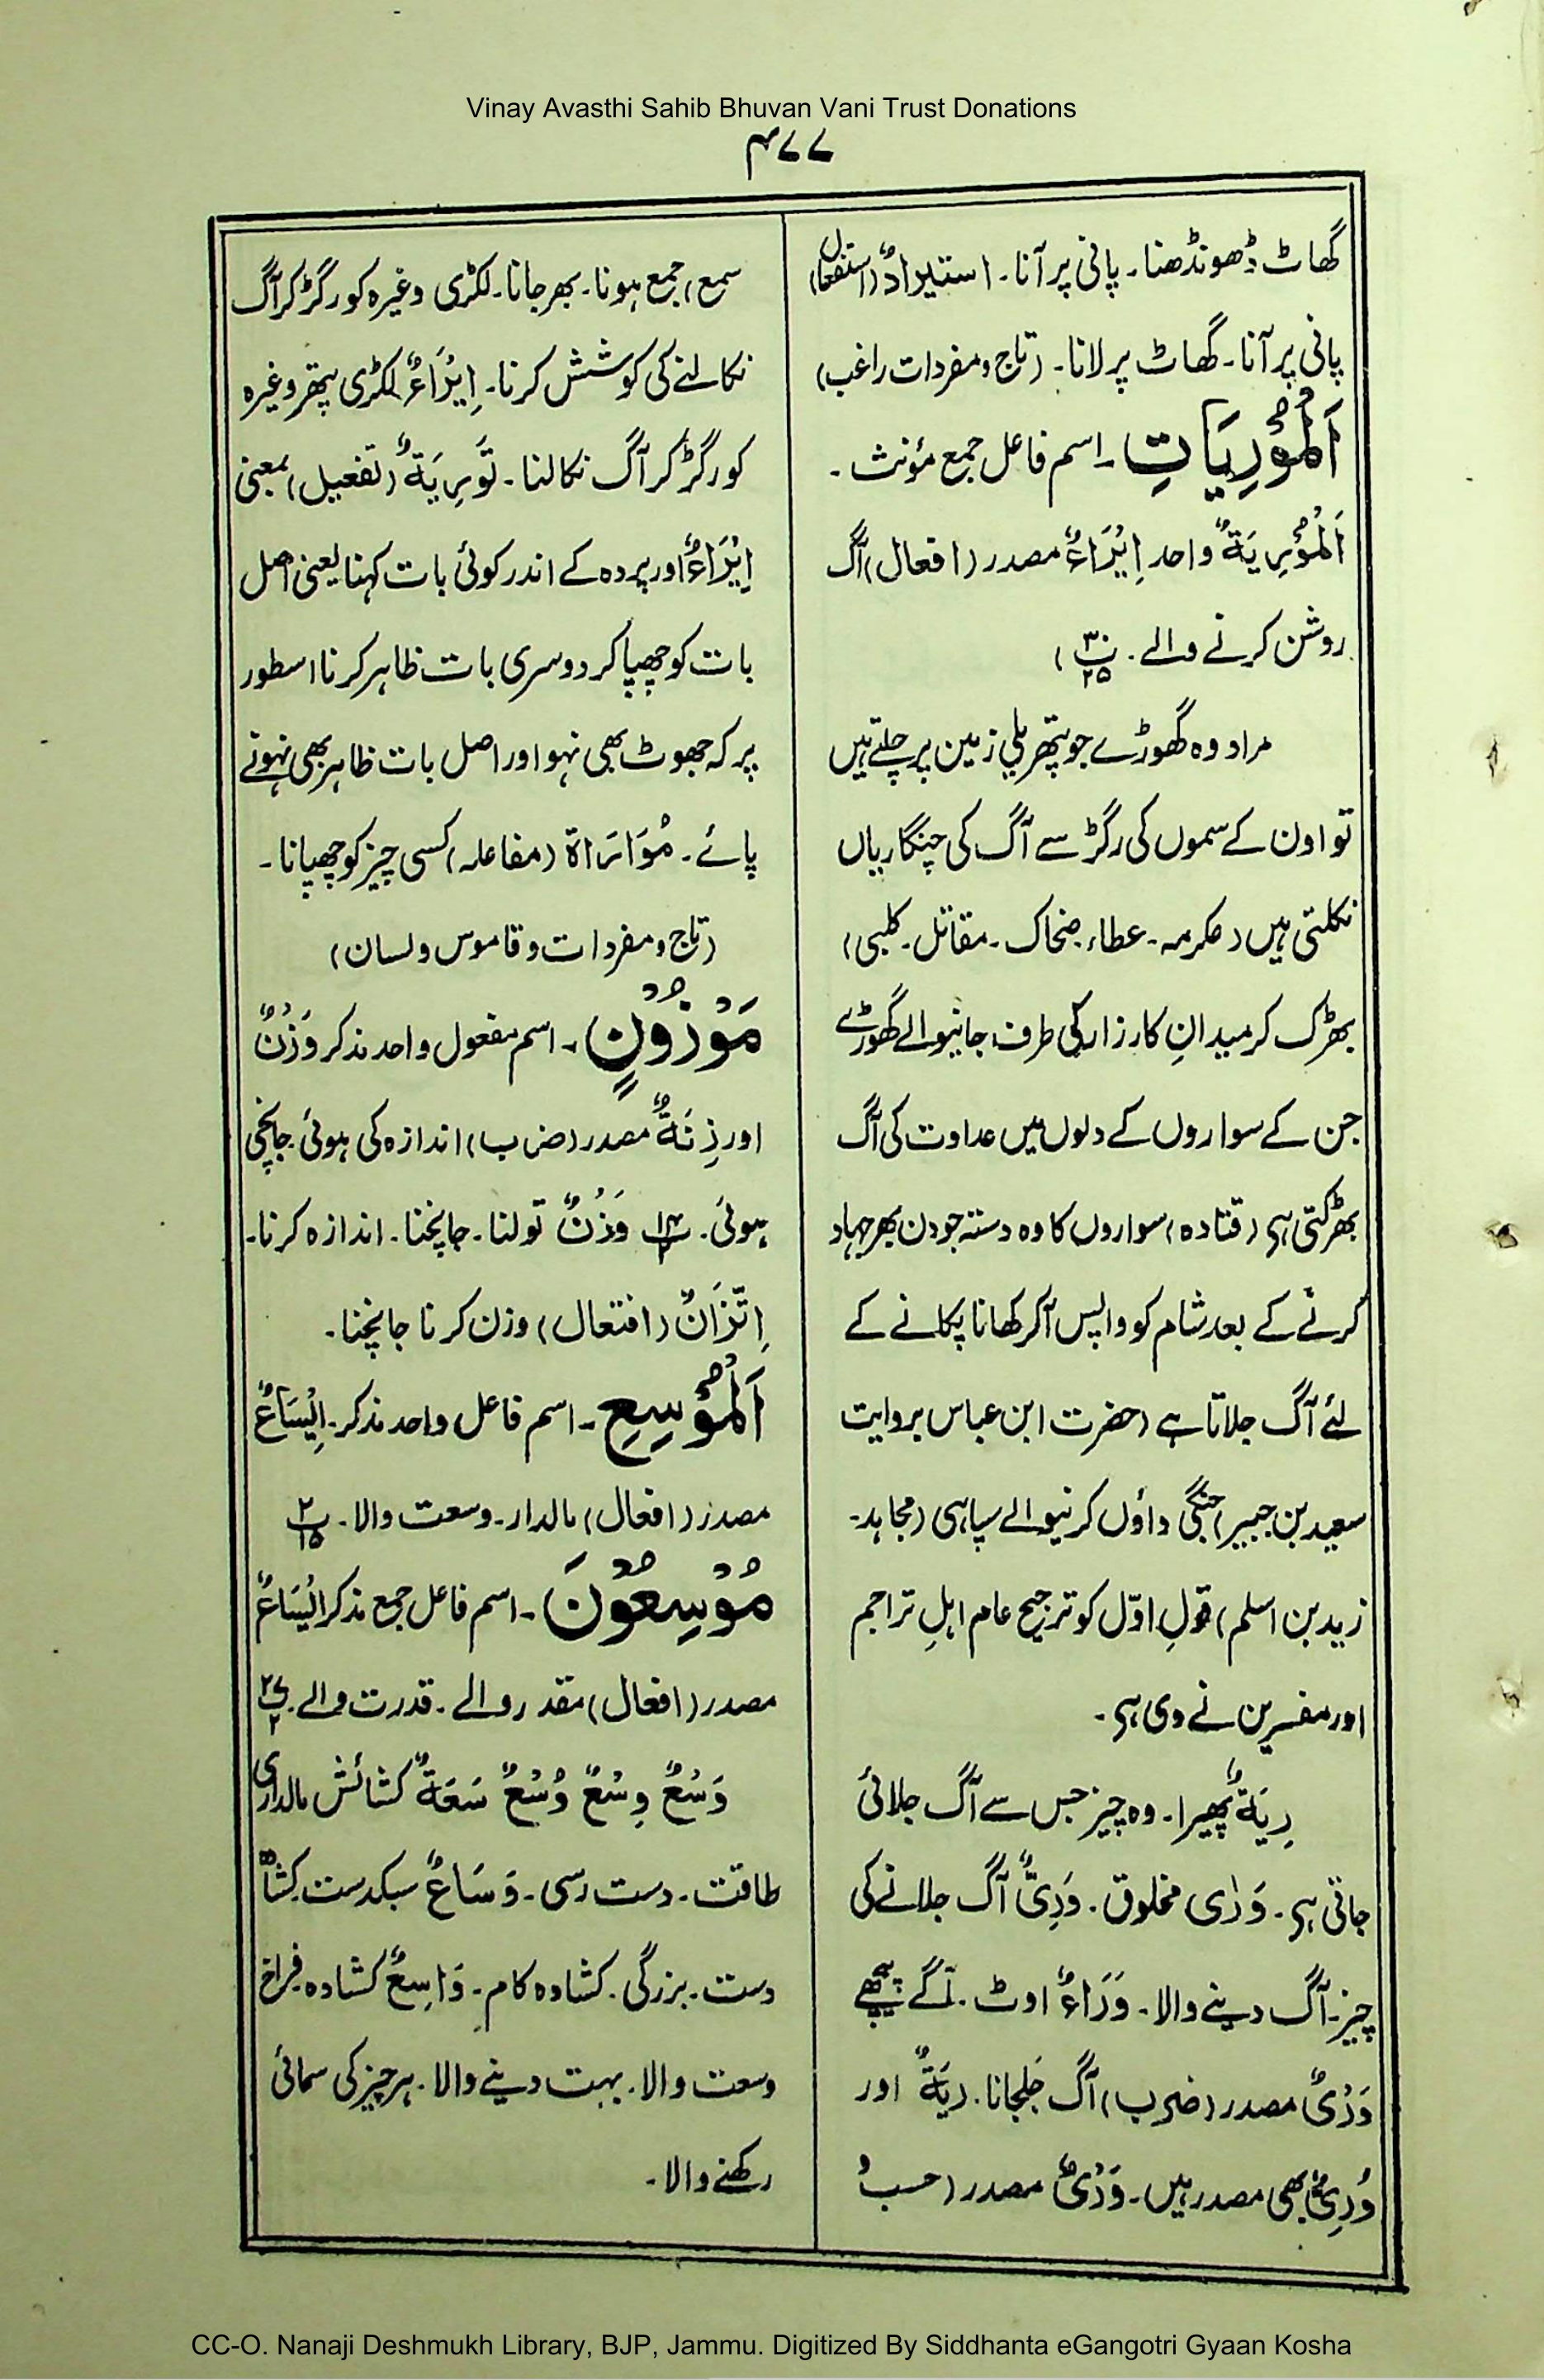 Vinay Avasthi Sahib Bhuvan Vani Trust Donations
۴۷۷
گھاٹ ڈھونڈھنا۔ پانی پر آنا۔ استیرادٌ (استفعال)
پانی پر آنا۔ گھاٹ پر لانا۔ (تاج و مفردات راغب)
اَلْمُوْرِیَاتِ۔ اسم فاعل جمع مؤنث۔
اَلْمُوْرِیَۃُ واحد اِیْرَاءٌ مصدر (افعال) آگ
روشن کرنے والے۔ پ۳۰/۲۵)
مراد وہ گھوڑے جو پتھریلی زمین پر چلتے ہیں
تو اون کے سموں کی رگڑ سے آگ کی چنگاریاں
نکلتی ہیں (عکرمہ۔ عطاء۔ ضحاک۔ مقاتل۔ کلبی)
بھڑک کر میدانِ کارزار کی طرف جانیوالے گھوڑے
جن کے سواروں کے دلوں میں عداوت کی آگ
بھڑکتی ہی (قتادہ) سواروں کا وہ دستہ جو دن بھر جہاد
کرنے کے بعد شام کو واپس آکر کھانا پکانے کے
لئے آگ جلاتا ہے (حضرت ابن عباس بروایت
سعید بن جبیر) جنگی داؤں کرنیوالے سپاہی (مجاہد۔
زید بن اسلم) قولِ اوّل کو ترجیح عام اہلِ تراجم
اور مفسرین نے دی ہی۔
رِیَۃٌ پھیرا۔ وہ چیز جس سے آگ جلائی
جاتی ہی۔ وَرٰی مخلوق۔ وَرِیٌّ آگ جلانے کی
چیز۔ آگ دینے والا۔ وَرَاءٌ اوٹ۔ آگے پیچھے
وَرْیٌ مصدر (ضرب) آگ جلجانا۔ رِیَۃٌ اور
وُرِیٌّ بھی مصدر ہیں۔ وَرْیٌ مصدر (حسب و
سمع) جمع ہونا۔ بھر جانا۔ لکڑی وغیرہ کو رگڑ کر آگ
نکالنے کی کوشش کرنا۔ اِیْرَاءٌ لکڑی پتھر وغیرہ
کو رگڑ کر آگ نکالنا۔ تَوْرِیَۃٌ (تفعیل) بمعنی
اِیْرَاءٌ اور پردہ کے اندر کوئی بات کہنا یعنی اصل
بات کو چھپا کر دوسری بات ظاہر کرنا اسطور
پر کہ جھوٹ بھی نہو اور اصل بات ظاہر بھی نہونے
پائے۔ مُوَارَاۃ (مفاعلہ) کسی چیز کو چھپانا۔
(تاج و مفردات و قاموس و لسان)
مَوْزُوْنٍ۔ اسم مفعول واحد مذکر وَزْنٌ
اور زِنَۃٌ مصدر (ضرب) اندازہ کی ہوئی۔ جانچی
ہوئی۔ پ۱۴/۲ وَزْنٌ تولنا۔ جانچنا۔ اندازہ کرنا۔
اِتِّزَانٌ (افتعال) وزن کرنا جانچنا۔
اَلْمُوْسِعِ۔ اسم فاعل واحد مذکر۔ اِیْسَاعٌ
مصدر (افعال) مالدار۔ وسعت والا۔ پ۲/۱۵
مُوْسِعُوْنَ۔ اسم فاعل جمع مذکر اِیْسَاعٌ
مصدر (افعال) مقدور والے۔ قدرت والے۔ پ۲۷/۲
وَسْعٌ وِسْعٌ وُسْعٌ سَعَۃٌ کشائش مالداری
طاقت۔ دست رسی۔ وَسَاعٌ سبکدست۔ کشادہ
دست۔ بزرگی۔ کشادہ کام۔ وَاسِعٌ کشادہ۔ فراخ
وسعت والا۔ بہت دینے والا۔ ہر چیز کی سمائی
رکھنے والا۔
CC-O. Nanaji Deshmukh Library, BJP, Jammu. Digitized By Siddhanta eGangotri Gyaan Kosha